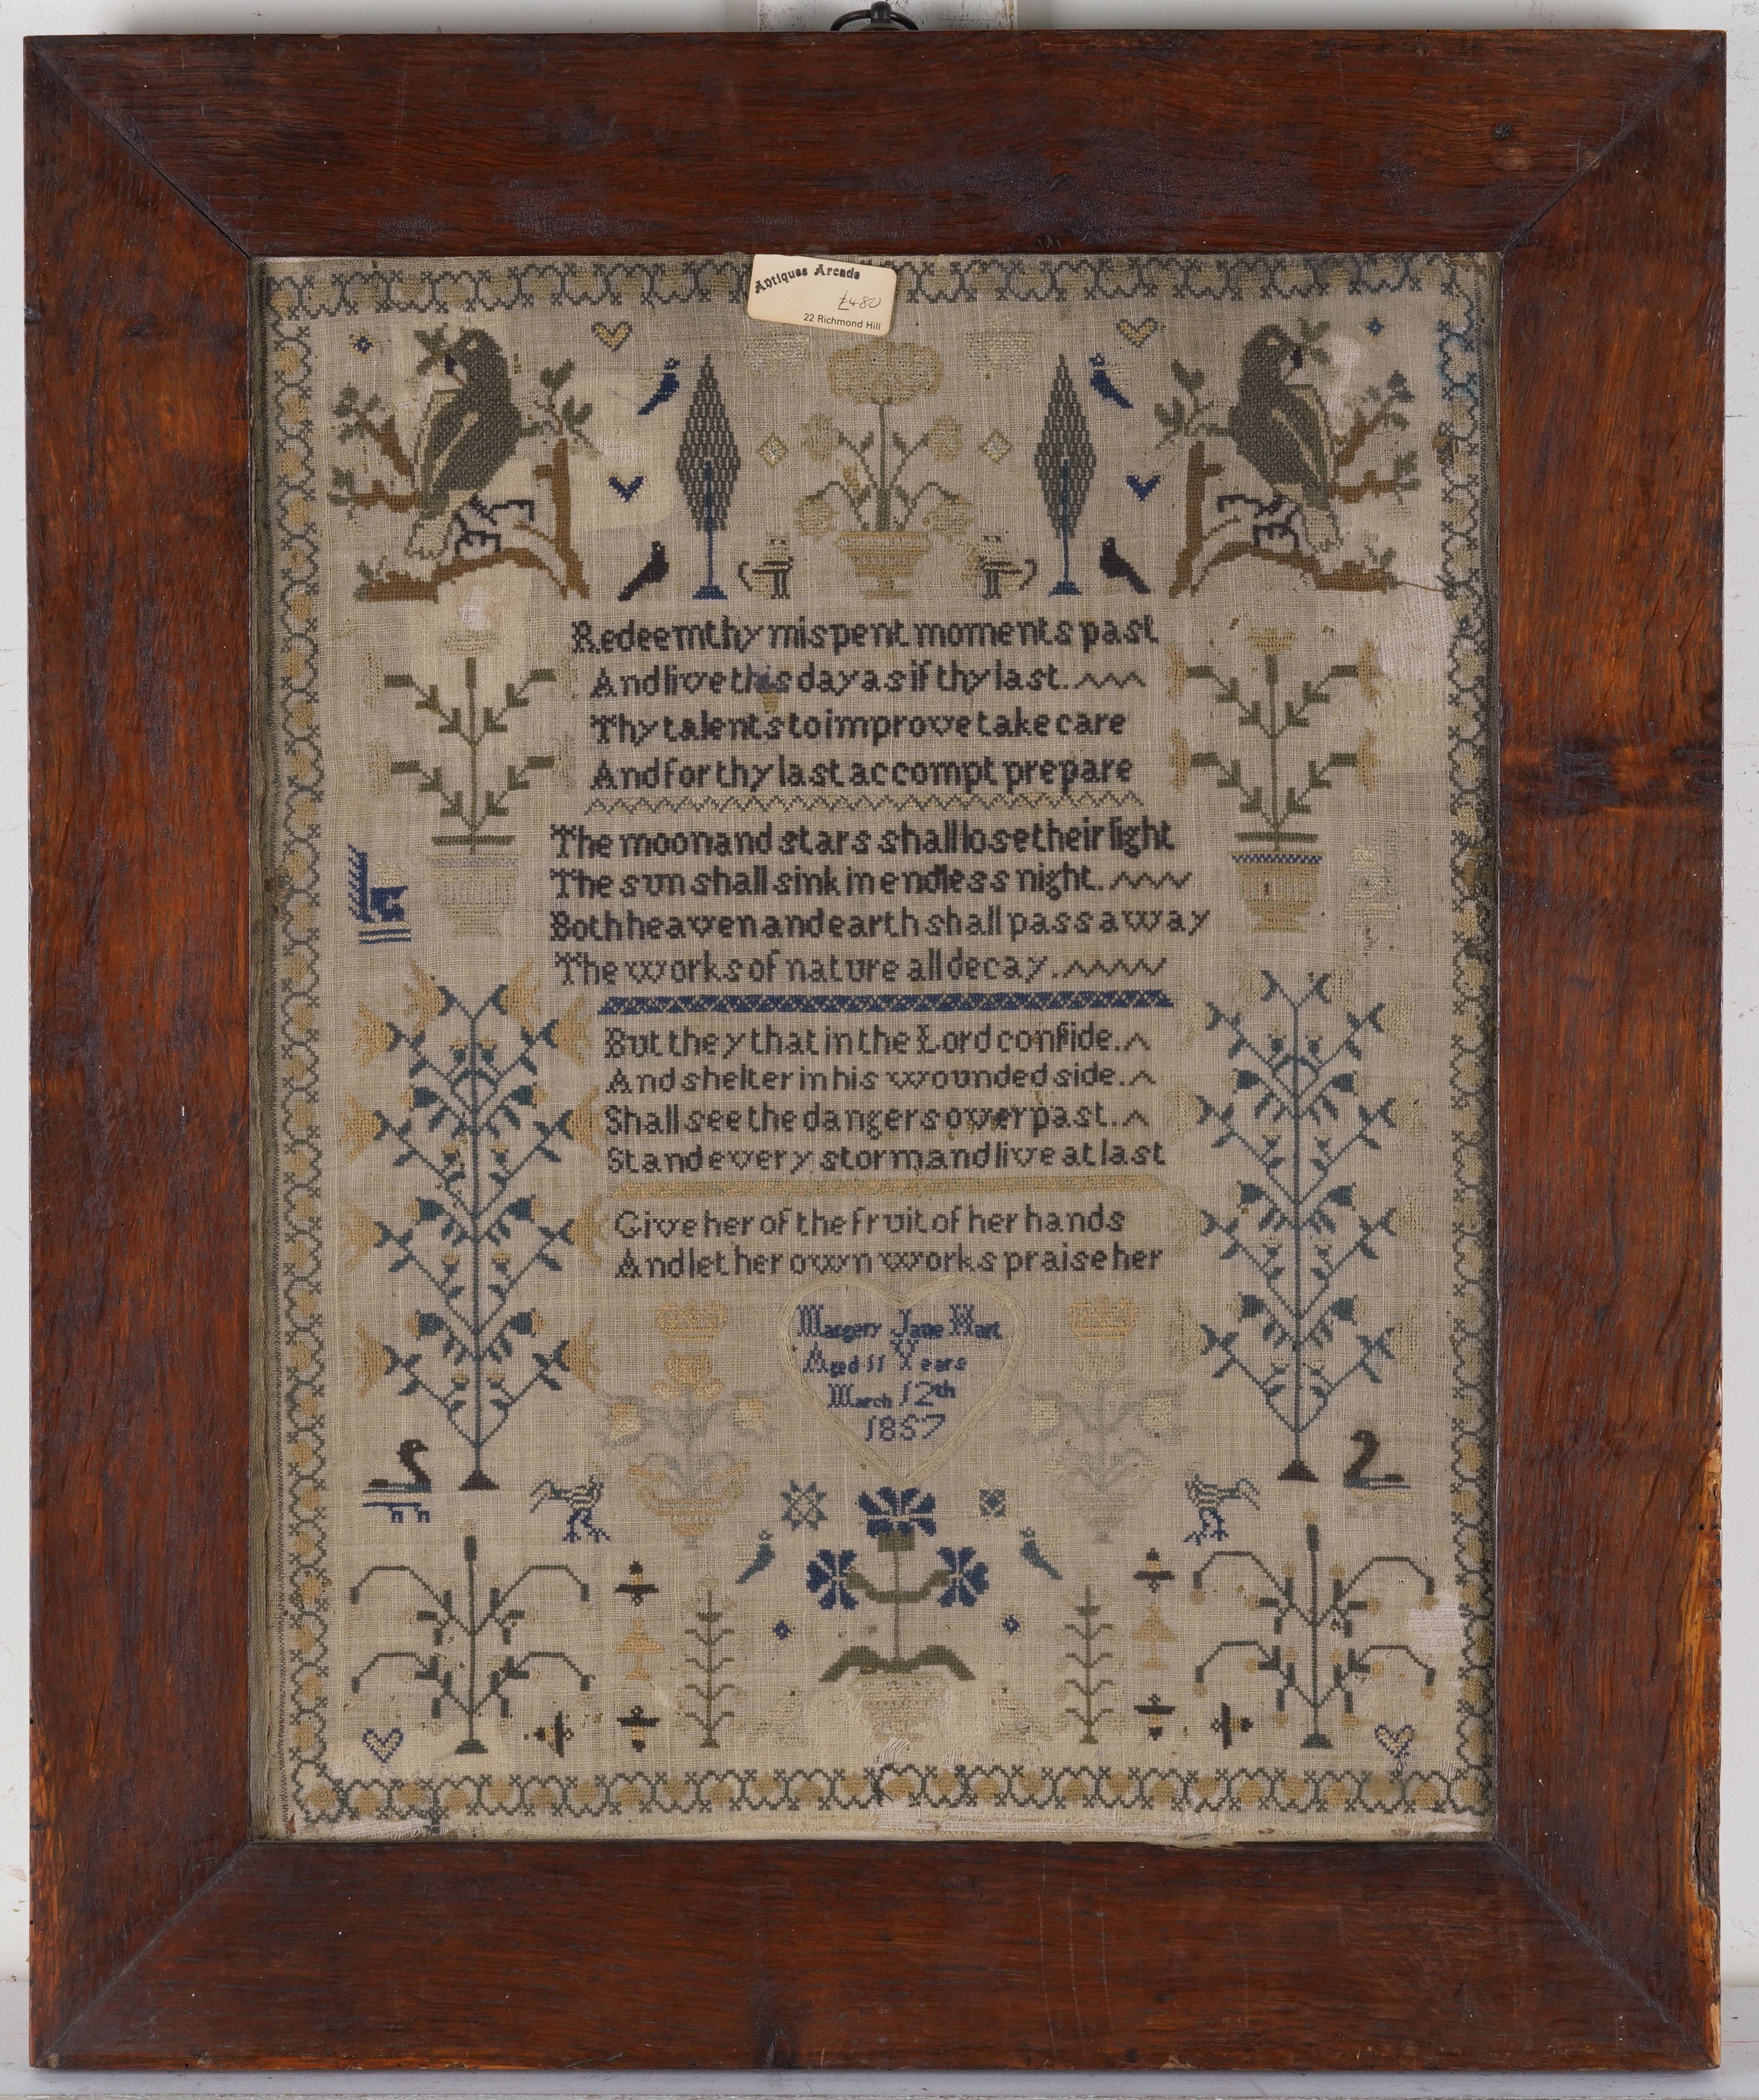 Antiques Arcade
£480
22 Richmond Hill
Redeem thy mispent moments past
And live this day as if thy last.
Thy talents to improve take care
And for thy last accompt prepare
The moon and stars shall lose their light
The sun shall sink in endless night.
Both heaven and earth shall pass away
The works of nature all decay.
But they that in the Lord confide.
And shelter in his wounded side.
Shall see the dangers over past.
Stand every storm and live at last
Give her of the fruit of her hands
And let her own works praise her
Margery Jane Hart
Aged 11 Years
March 12th
1857